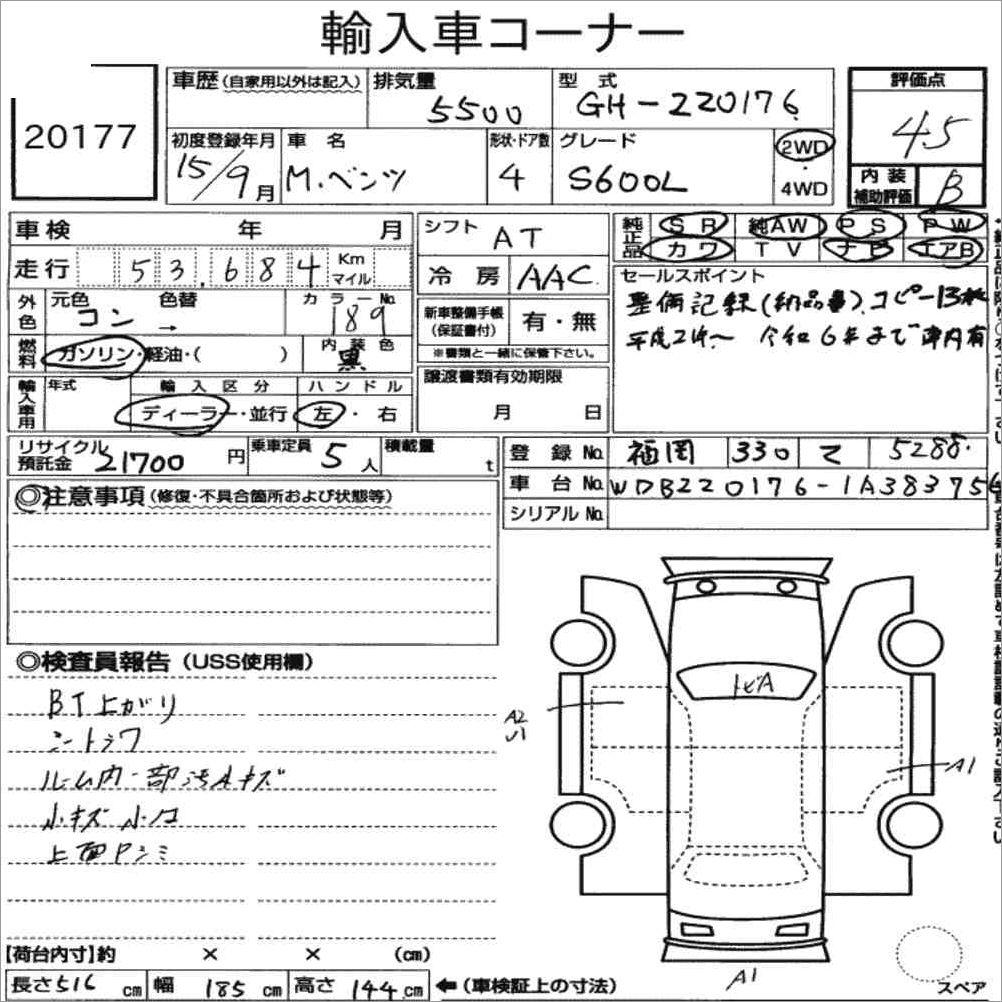 輸入車コーナー
20177
車歴 (自家用以外は記入)
排気量 5500
型式 GH-220176
評価点 45
初度登録年月 15/9月
車名 M.ベンツ
形状・ドア数 4
グレード S600L
2WD・4WD
内装補助評価 B
車検 年 月
シフト AT
純正品 SR 純AW PS PW
カワ TV ナビ エアB
走行 53,684 Km マイル
冷房 AAC
セールスポイント
整備記録(納品書)コピー13枚
平成21年〜令和6年まで車内有
外色 元色 コン 色替 → カラーNo. 189
新車整備手帳(保証書付) 有・無
※書類と一緒に保管下さい。
燃料 ガソリン・軽油・( )
内装色 黒
譲渡書類有効期限
月 日
輸入車用 年式
輸入区分 ディーラー・並行
ハンドル 左・右
リサイクル預託金 21700円
乗車定員 5人
積載量 t
登録No. 福岡 330 マ 5288
車台No. WDB220176-1A383756
シリアルNo.
◎注意事項 (修復・不具合箇所および状態等)
◎検査員報告 (USS使用欄)
BT上がり
シートシワ
ルーム内一部汚れキズ
小キズ 小凹
上面Pシミ
トビA
A2
A1
A1
【荷台内寸】約 × × (cm)
長さ516cm 幅185cm 高さ144cm ←(車検証上の寸法)
スペア